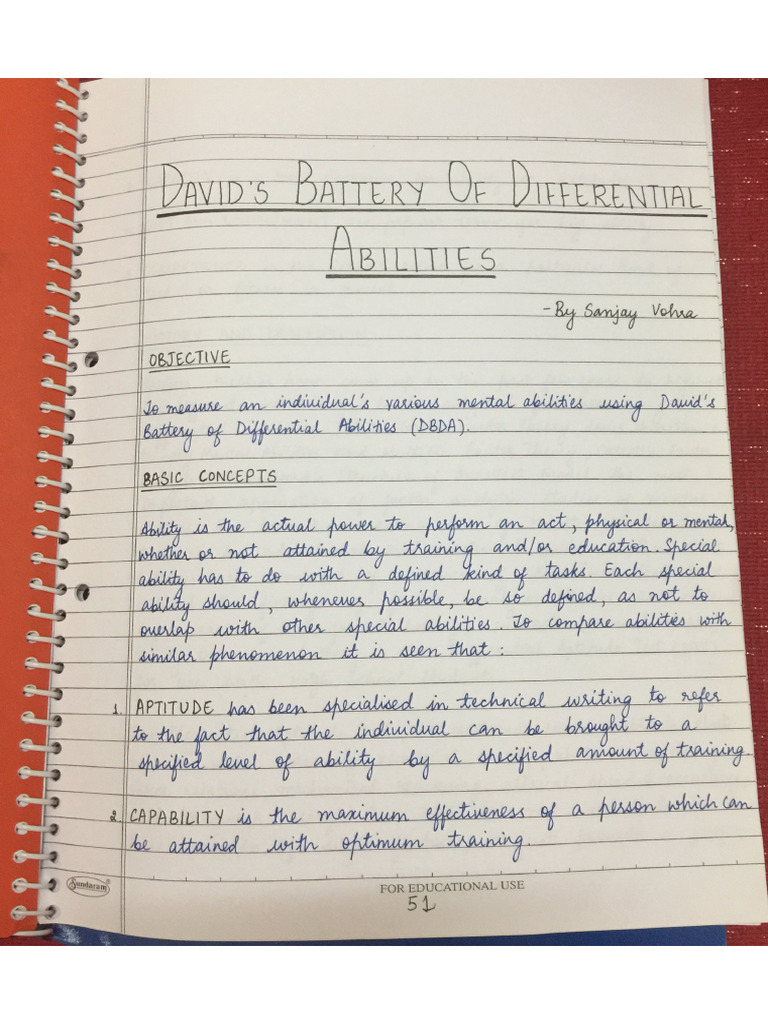 DAVID'S BATTERY OF DIFFERENTIAL
ABILITIES
- By Sanjay Vohra
OBJECTIVE
To measure an individual's various mental abilities using David's
Battery of Differential Abilities (DBDA).
BASIC CONCEPTS
Ability is the actual power to perform an act, physical or mental,
whether or not attained by training and/or education. Special
ability has to do with a defined kind of tasks. Each special
ability should, whenever possible, be so defined, as not to
overlap with other special abilities. To compare abilities with
similar phenomenon it is seen that :
1. APTITUDE has been specialised in technical writing to refer
to the fact that the individual can be brought to a
specified level of ability by a specified amount of training.
2. CAPABILITY is the maximum effectiveness of a person which can
be attained with optimum training.
Sundaram
FOR EDUCATIONAL USE
51